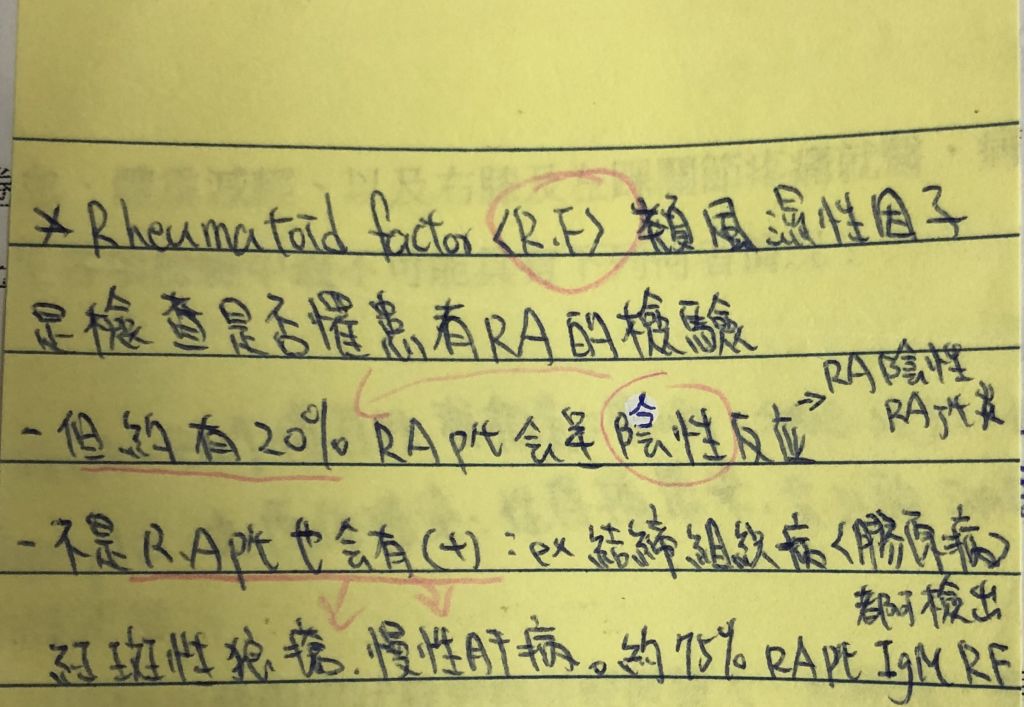 * Rheumatoid factor <R.F> 類風濕性因子
是檢查是否罹患有RA的檢驗
- 但約有20% RA pt 会呈陰性反应 → RA陰性
RA pt
- 不是 R.A pt 也会有(+) : ex 結締組織病<膠原病>
都可檢出
紅斑性狼瘡、慢性肝病。約75% RA pt IgM RF